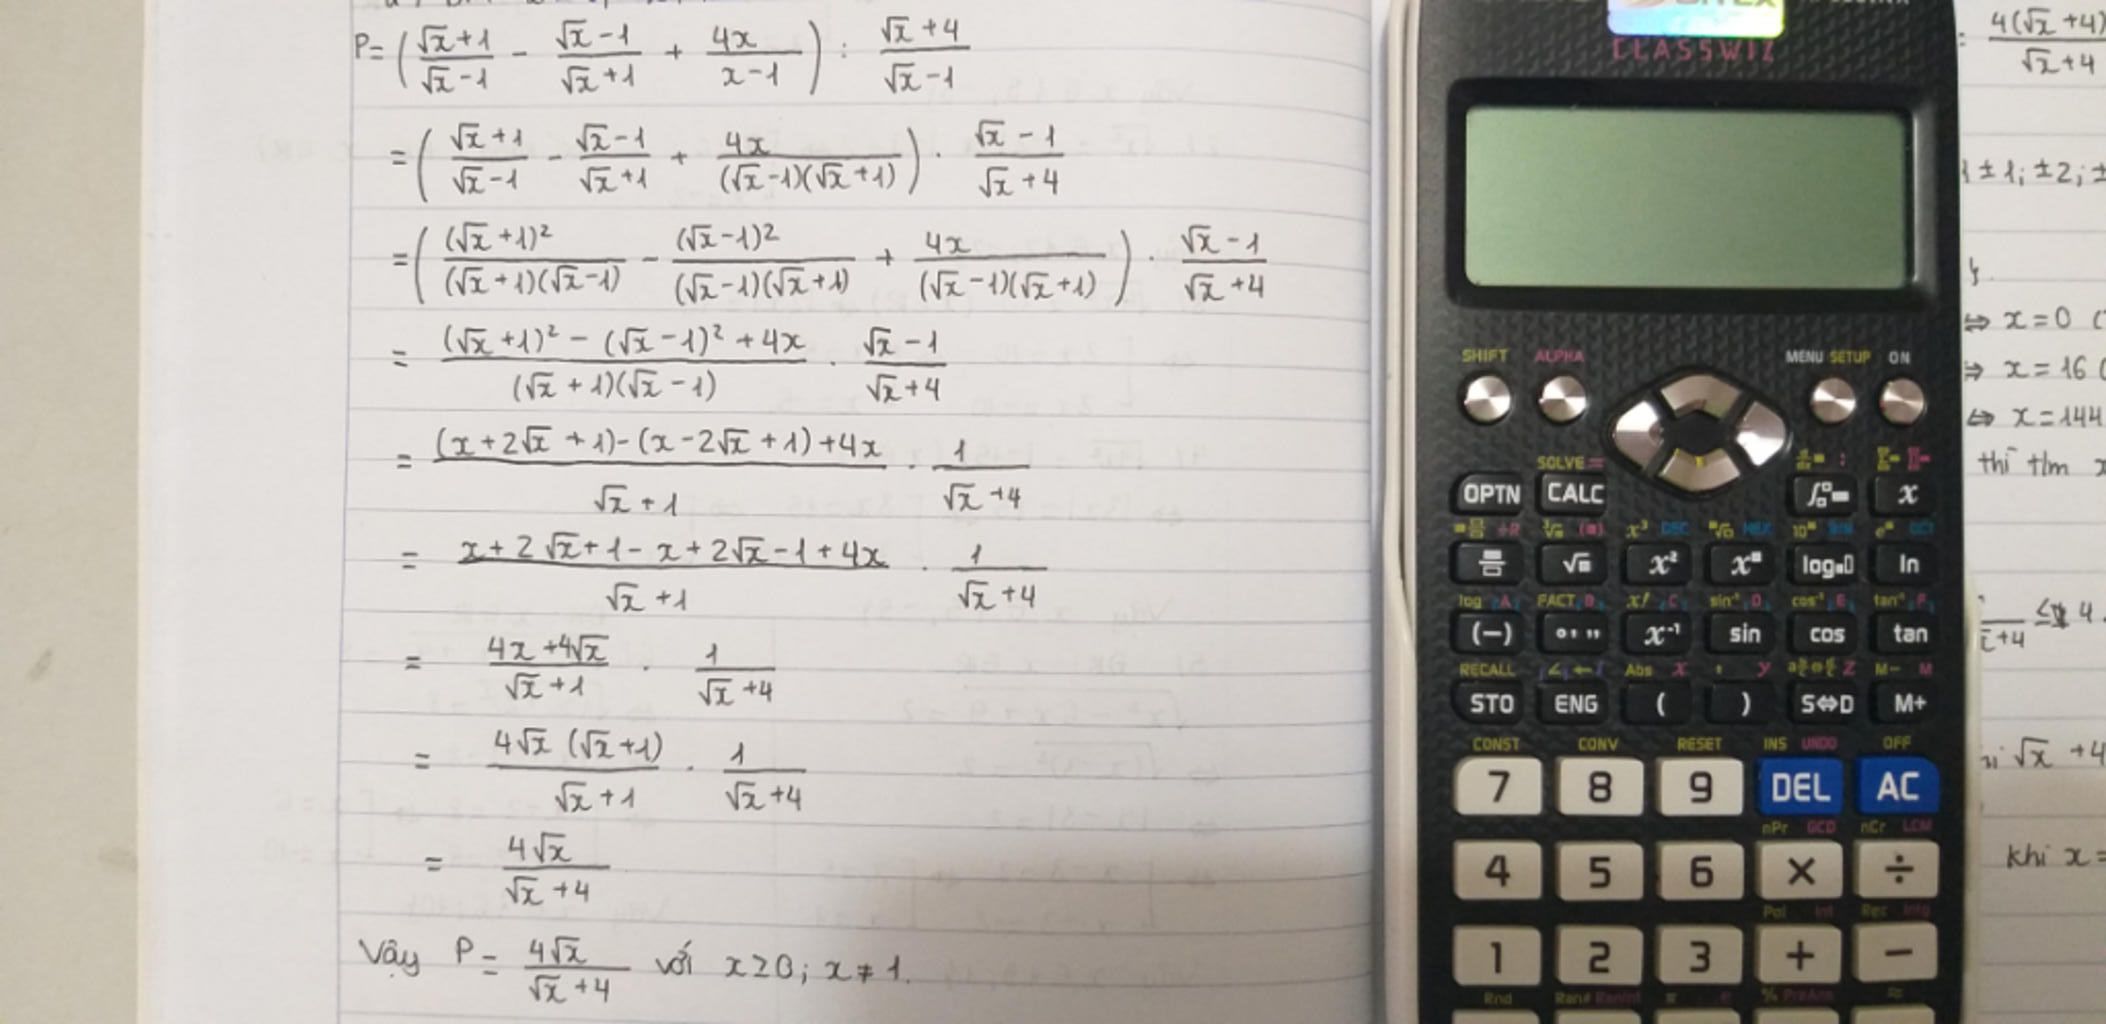 P = ( (√x + 1)/(√x − 1) − (√x − 1)/(√x + 1) + 4x/(x − 1) ) : (√x + 4)/(√x − 1)
= ( (√x + 1)/(√x − 1) − (√x − 1)/(√x + 1) + 4x/((√x − 1)(√x + 1)) ) · (√x − 1)/(√x + 4)
= ( (√x + 1)²/((√x + 1)(√x − 1)) − (√x − 1)²/((√x − 1)(√x + 1)) + 4x/((√x − 1)(√x + 1)) ) · (√x − 1)/(√x + 4)
= ((√x + 1)² − (√x − 1)² + 4x)/((√x + 1)(√x − 1)) · (√x − 1)/(√x + 4)
= ((x + 2√x + 1) − (x − 2√x + 1) + 4x)/(√x + 1) · 1/(√x + 4)
= (x + 2√x + 1 − x + 2√x − 1 + 4x)/(√x + 1) · 1/(√x + 4)
= (4x + 4√x)/(√x + 1) · 1/(√x + 4)
= (4√x (√x + 1))/(√x + 1) · 1/(√x + 4)
= 4√x/(√x + 4)
Vậy P = 4√x/(√x + 4) với x ≥ 0 ; x ≠ 1.
CLASSWIZ
SHIFT ALPHA MENU SETUP ON
SOLVE =
OPTN CALC x
√ x² x log ln
log A FACT B x! C sin⁻¹ D cos⁻¹ E tan⁻¹ F
(−) x⁻¹ sin cos tan
RECALL Abs x y M− M
STO ENG ( ) S⇔D M+
CONST CONV RESET INS UNDO OFF
7 8 9 DEL AC
nPr GCD nCr LCM
4 5 6 × ÷
Pol Int Rec Intg
1 2 3 + −
Rnd Ran# RanInt π e
= 4(√x + 4)/(√x + 4)
± 1; ± 2; ±
⇔ x = 0 (
⇒ x = 16 (
⇔ x = 144
thì tlm x
√x + 4
khi x =